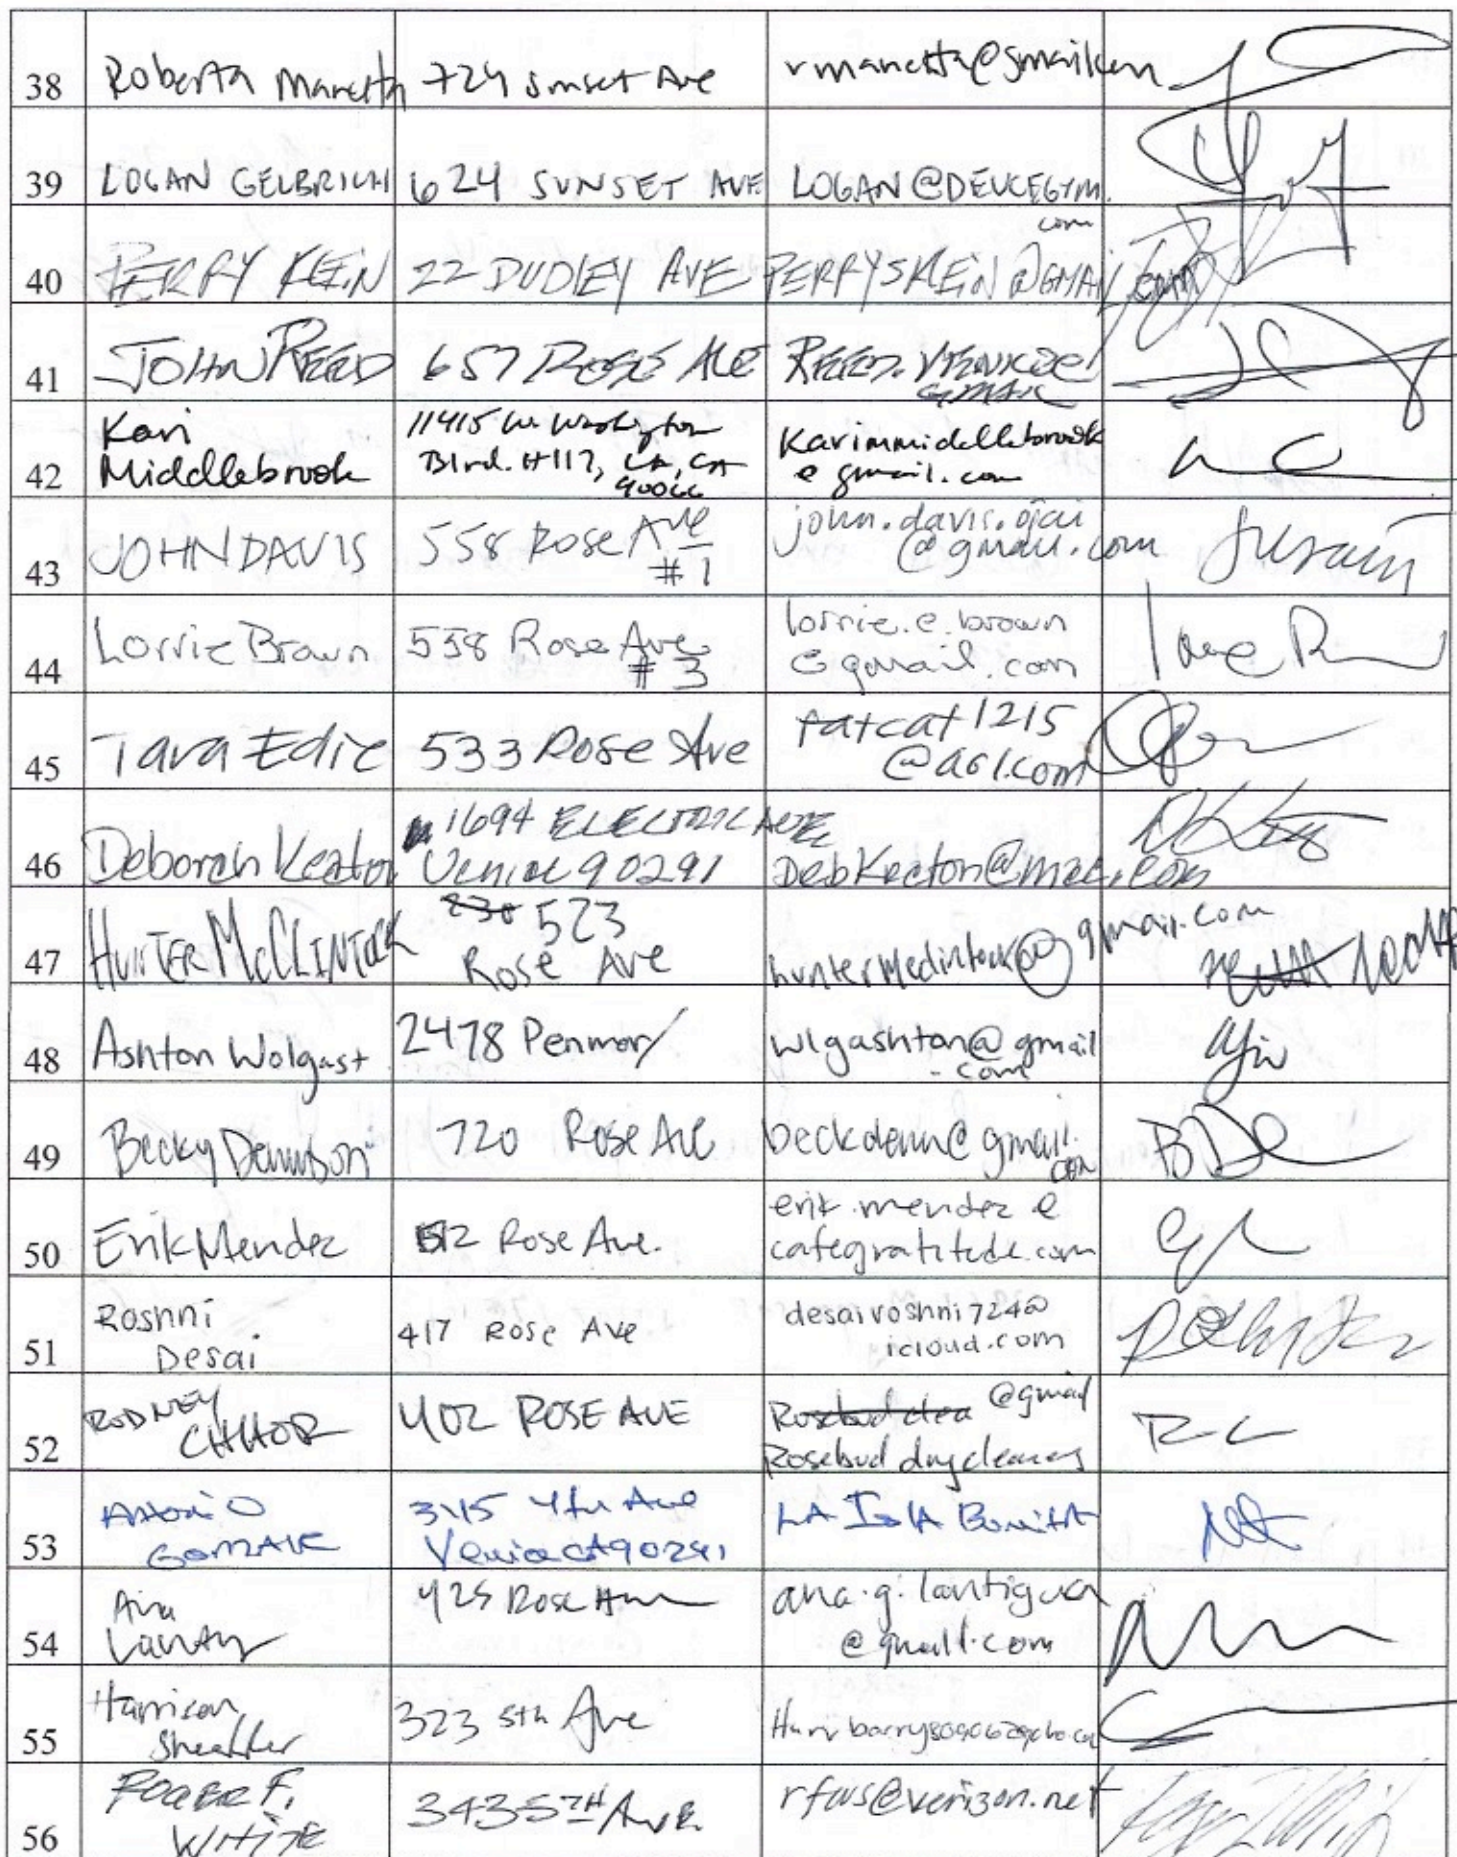 38 Roberta 724 Sunset Ave
39 LOGAN GELBRICH 624 SUNSET AVE LOGAN@DEUCEGYM.
com
40 PERRY KLEIN 22 DUDLEY AVE PERRYSKLEIN@GMAIL.com
41 JOHN REED 657 ROSE AVE
42 Kari
Middlebrook
11415 W. Washington
Blvd. #117, LA, CA
90066
Karimmiddlebrook
@gmail.com
43 JOHN DAVIS 558 Rose Ave
#1
john.davis.ojai
@gmail.com
44 Lorrie Brown 558 Rose Ave
#3
lorrie.e.brown
@gmail.com
45 Tara Edie 533 Rose Ave
fatcat1215
@aol.com
46 Deborah Keaton 1694 ELECTRIC AVE
Venice 90291
DebKeaton@mac.com
47 HUNTER McCLINTOCK 523
Rose Ave
@gmail.com
48 Ashton Wolgast 2478 Penmar
wlgashton@gmail
.com
49 Becky Dennison 720 Rose Ave beckdenn@gmail.
com
50 Erik Mendez 512 Rose Ave.
erik.mendez@
cafegratitude.com
51 Roshni
Desai
417 Rose Ave
desairoshni724@
icloud.com
52 RODNEY
402 ROSE AVE
@gmail
Rosebud drycleaners
53 Antonio
315 4th Ave
Venice CA 90291
LA Isla Bonita
54 Ana
425 Rose Ave
ana.g.lantigua
@gmail.com
55 Harrison
323 5th Ave
56 ROGER F.
WHITE
343 5TH AVE
rfws@verizon.net